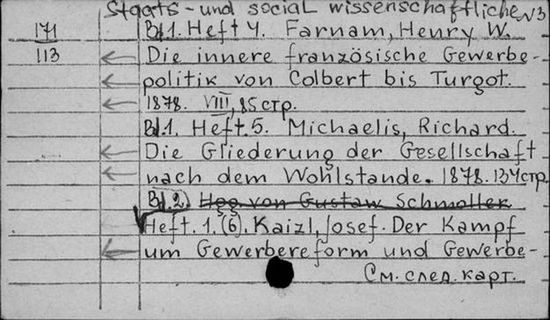 Staats- und social wissenschaftliche №3
171 Bd.1. Heft 4. Farnam, Henry W.
113 Die innere französische Gewerbe-
politik von Colbert bis Turgot.
1878. VIII, 85 стр.
Bd.1. Heft.5. Michaelis, Richard.
Die Gliederung der Gesellschaft
nach dem Wohlstande. 1878. 134 стр
Bd.2. Hgg. von Gustaw Schmoller
Heft.1.(6). Kaizl, Josef. Der Kampf
um Gewerbereform und Gewerbe-
См. след. карт.